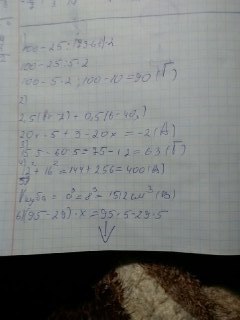 1)
100-25:(93-88)·2
100-25:5·2
100-5·2; 100-10=90 (Г)
2)
2,5(8х-2) + 0,5(6-40х)
20х-5+3-20х = -2 (А)
3)
15·5-60:5=75-12=63 (Г)
4)
12²+16²=144+256=400 (А)
5)
Vкуба = a³=8³=512см³ (В)
6) (95-29)·х=95·5-29·5